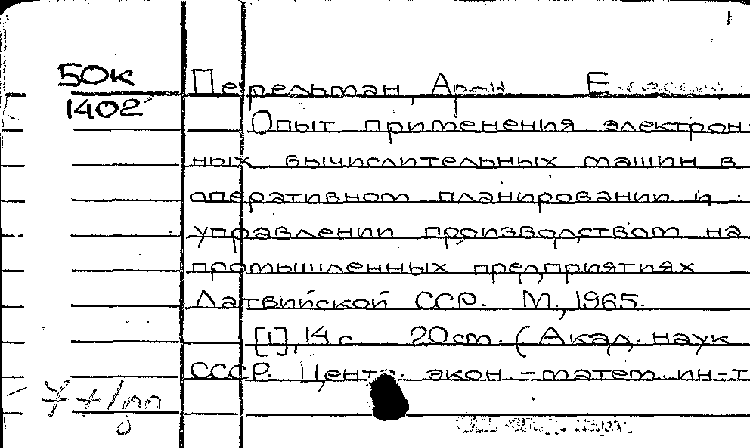 50к
1402
Перельман, Арон
Опыт применения электрон-
ных вычислительных машин в
оперативном планировании и
управлении производством на
промышленных предприятиях
Латвийской ССР. М., 1965.
[1], 14 с. 20 см. (Акад. наук
СССР. Центр. экон.-матем. ин-т